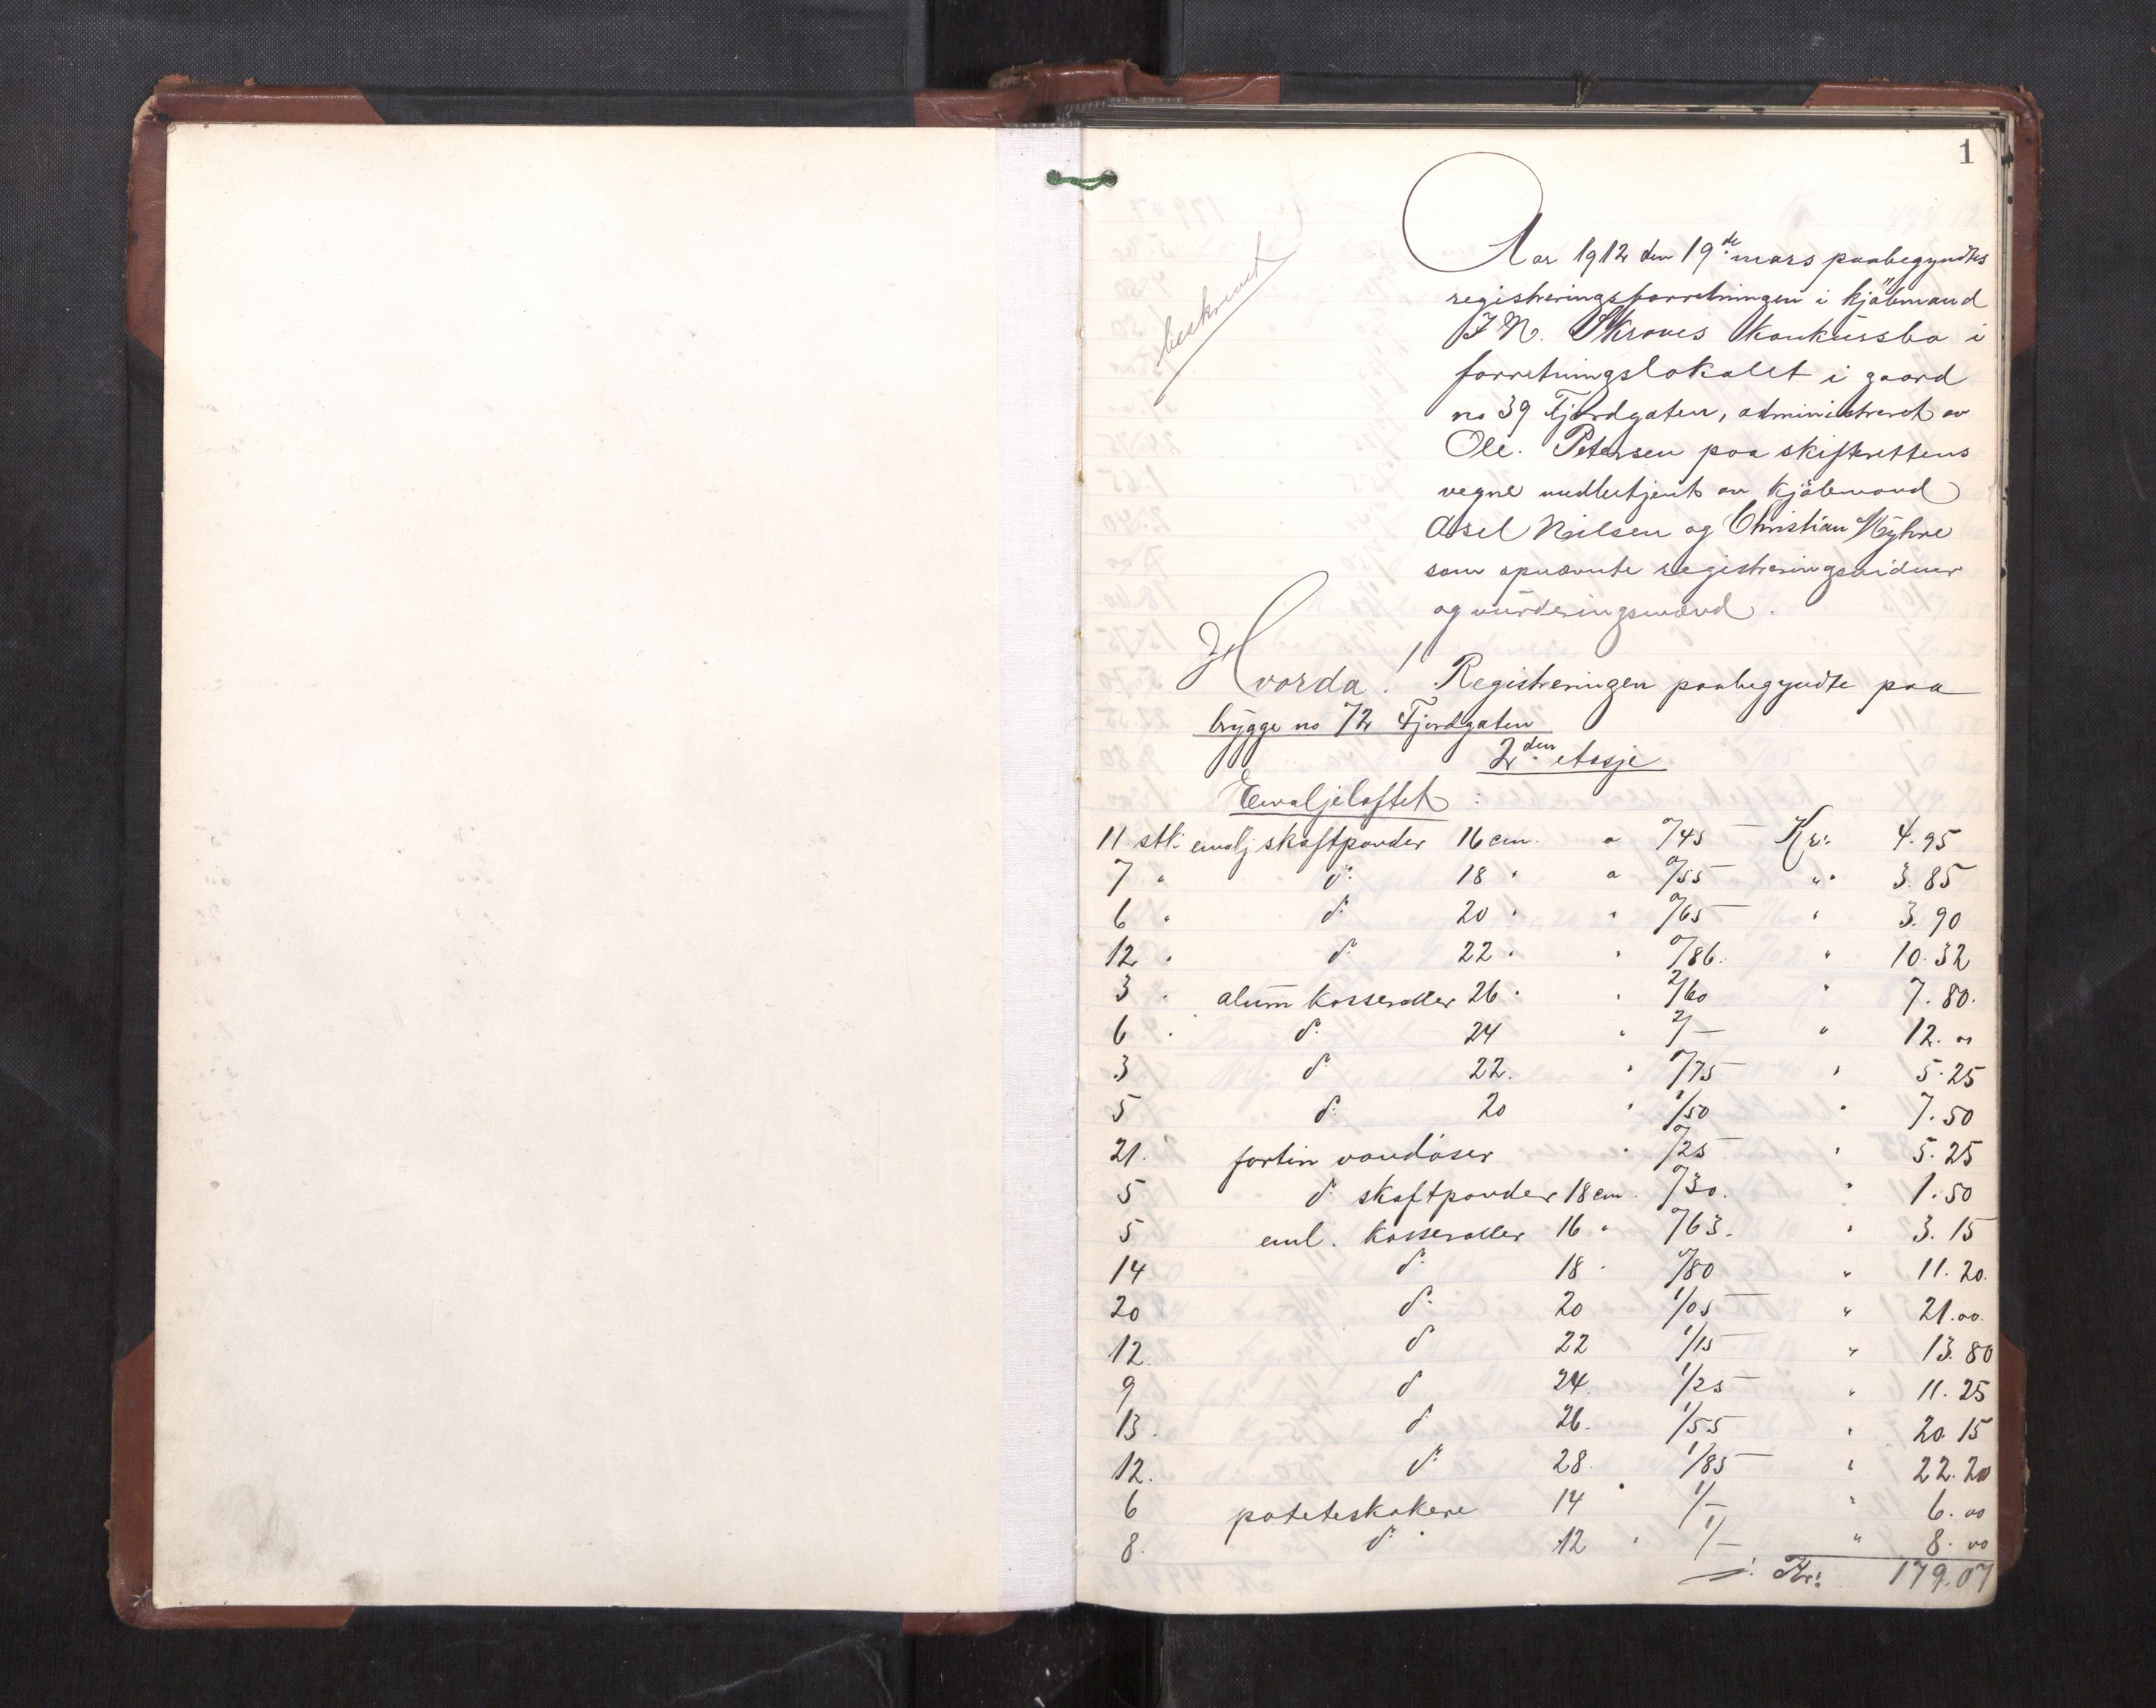 1
beskrevet
Aar 1912 den 19de mars paabegyndtes
registreringsforretningen i kjöbmand
J. N. Skroves konkursbo i
forretningslokalet i gaard
no 39 Fjordgaten, administreret av
Ole. Petersen paa skifterettens
vegne medbetjent av kjöbmand
Axel Nilsen og Christian Myhre
som opnævnte registreringsvidner
og vurderingsmænd.
Hvorda! Registreringen paabegyndte paa
brygge no 72 Fjordgaten
2den etasje
Emaljeloftet:
11 stk. emalj skaftpander 16 cm. a 0/45 Kr. 4.95
7 " do 18 " a 0/55 " 3.85
6 " do 20 " " 0/65 " 3.90
12 " do 22 " " 0/86 " 10.32
3 " alum kasseroller 26 " " 2/60 " 7.80
6 " do 24 " 2/- " 12.00
3 do 22. " 1/75 " 5.25
5 do 20 " 1/50 " 7.50
21. fortin vandöser " 0/25 " 5.25
5 do skaftpander 18 cm. 0/30. " 1.50
5 eml. kasseroller 16 " 0/63. " 3.15
14 do 18 " 0/80 " 11.20.
20 do 20 1/05 " 21.00.
12. do 22 1/15 " 13.80
9 do 24. 1/25 " 11.25
13. do 26. 1/55 " 20.15
12. do 28. 1/85 " 22.20
6 poteteskokere 14 " 1/- " 6.00
8. do 12 " 1/- " 8.00
Kr: 179.07